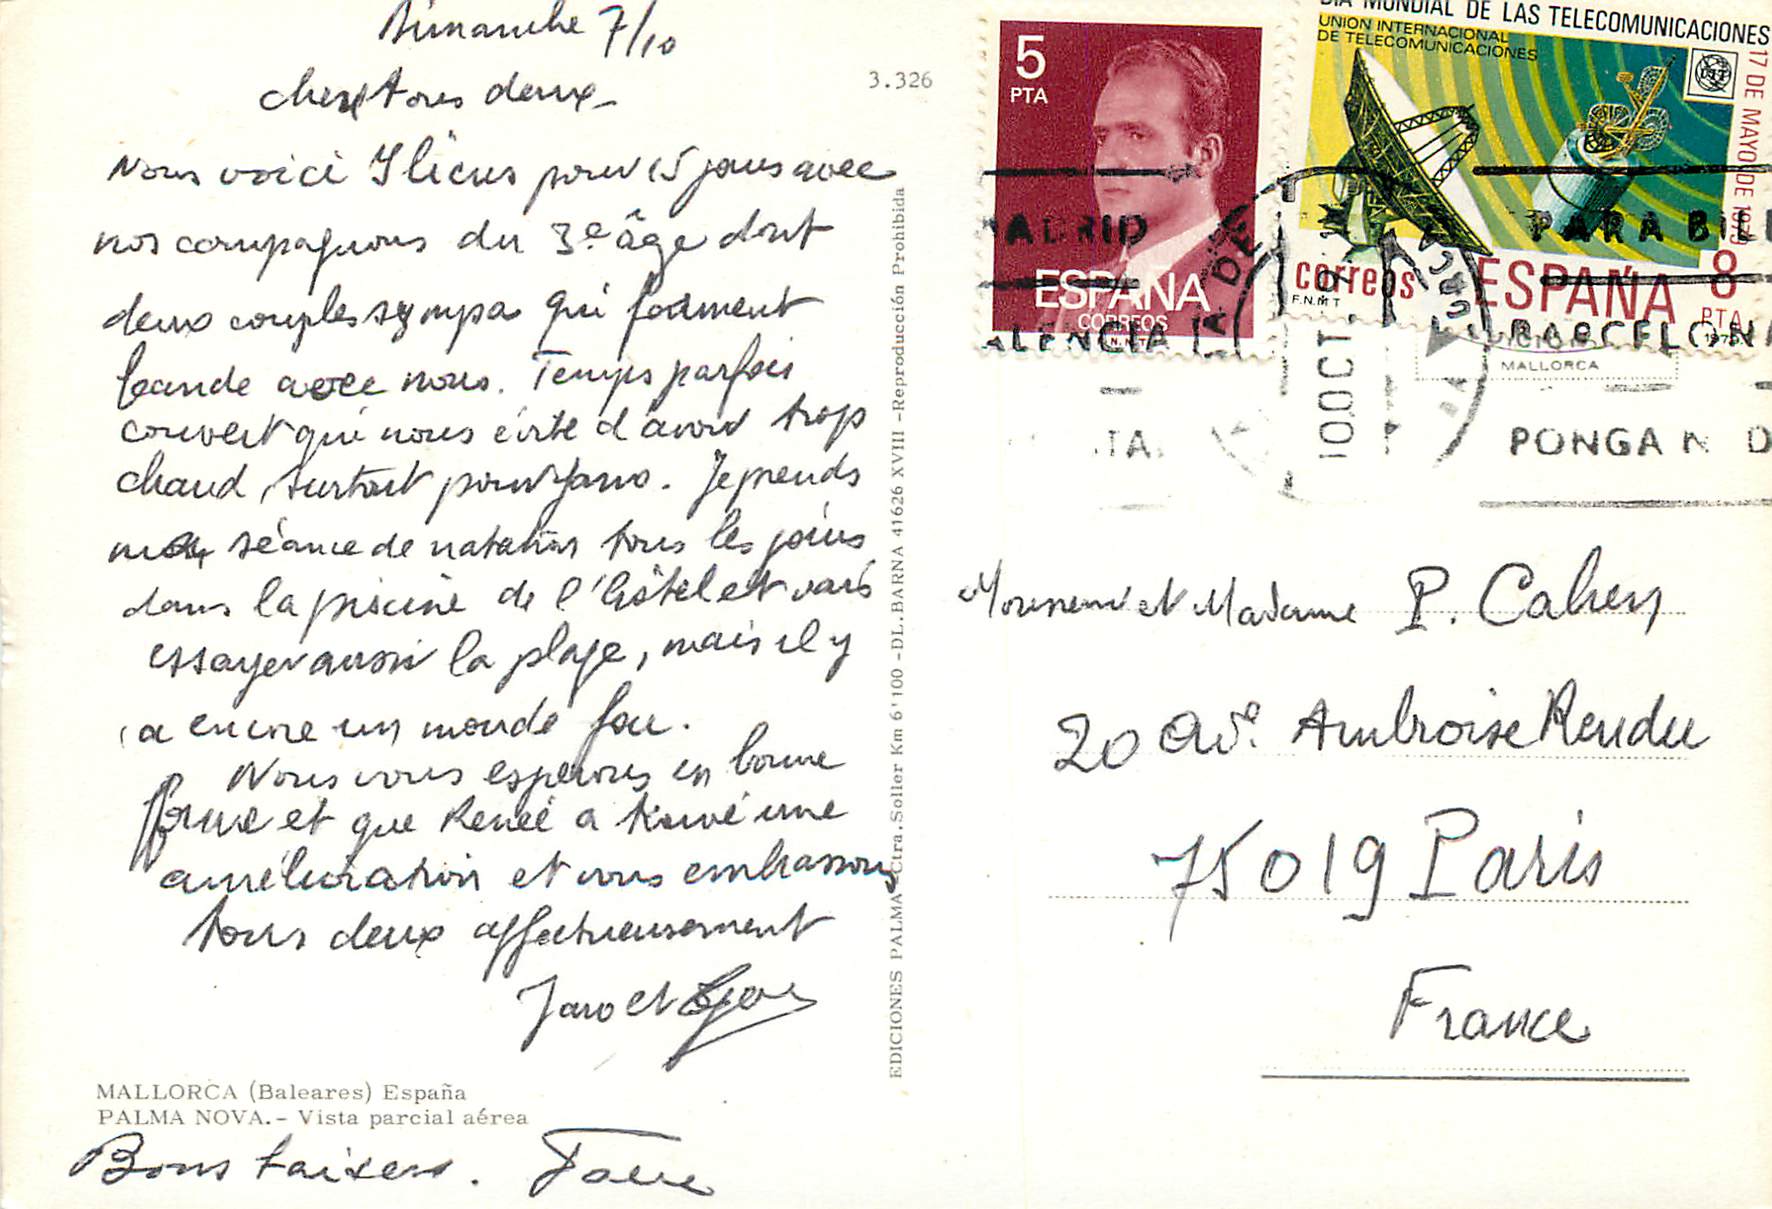 Dimanche 7/10
chers tous deux
Nous voici Ilicus pour 15 jours avec
nos compagnons du 3e âge dont
deux couples sympa qui forment
bande avec nous. Temps parfois
couvert qui nous évite d'avoir trop
chaud, surtout pour Jano. Je prends
ma séance de natation tous les jours
dans la piscine de l'hôtel et vais
essayer aussi la plage, mais il y
a encore un monde fou.
Nous vous espérons en bonne
forme et que Renée a trouvé une
amélioration et vous embrassons
tous deux affectueusement
Jano et
MALLORCA (Baleares) España
PALMA NOVA.- Vista parcial aérea
Bons baisers.
3.326
EDICIONES PALMA-Ctra. Soller Km 6'100 -DL. BARNA 41626 XVIII -Reproducción Prohibida
5
PTA
ESPAÑA
CORREOS
F.N.M.T.
DIA MUNDIAL DE LAS TELECOMUNICACIONES
UNION INTERNACIONAL
DE TELECOMUNICACIONES
17 DE MAYO DE 1979
correos
ESPAÑA
8
PTA
F.N.M.T
1979
MADRID
PARA BIL
VALENCIA
BARCELONA
10 OCT
MALLORCA
PONGAN D
Monsieur et Madame P. Cahen
20 Ave. Ambroise Rendu
75019 Paris
France